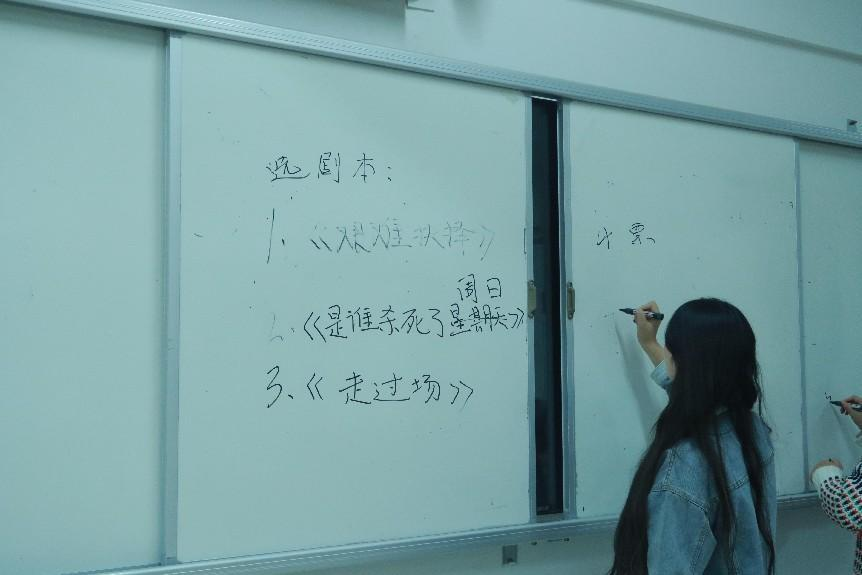 选剧本:
1.《艰难抉择》
周日
2.《是谁杀死了星期天》
3.《走过场》
票